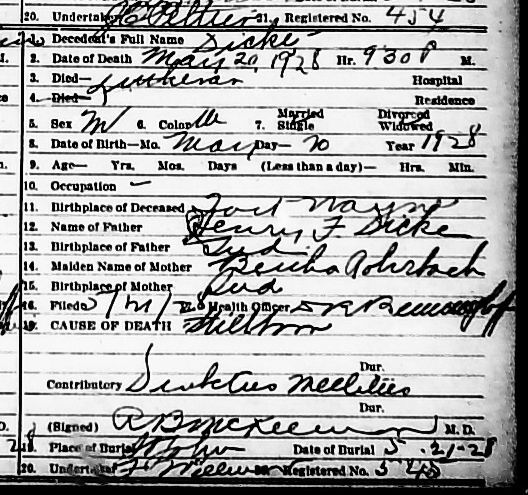 20. Undertaker 21. Registered No. 454
1. Decedent's Full Name Dicke
2. Date of Death May 20, 1928 Hr. 930 P M.
3. Died— Lutheran Hospital
4. Died— Residence
5. Sex M 6. Color W 7. Married Single Divorced Widowed
8. Date of Birth—Mo. May Day— 20 Year 1928
9. Age— Yrs. Mos. Days (Less than a day)— Hrs. Min.
10. Occupation —
11. Birthplace of Deceased Fort Wayne
12. Name of Father Henry F. Dicke
13. Birthplace of Father Ind
14. Maiden Name of Mother Bertha Rohrbach
15. Birthplace of Mother Ind
16. Filed 5/21/28 Health Officer
CAUSE OF DEATH Stillborn
Dur.
Contributory Diabetus Mellitus
Dur.
(Signed) M. D.
Place of Burial Date of Burial 5-21-28
20. Undertaker Registered No.